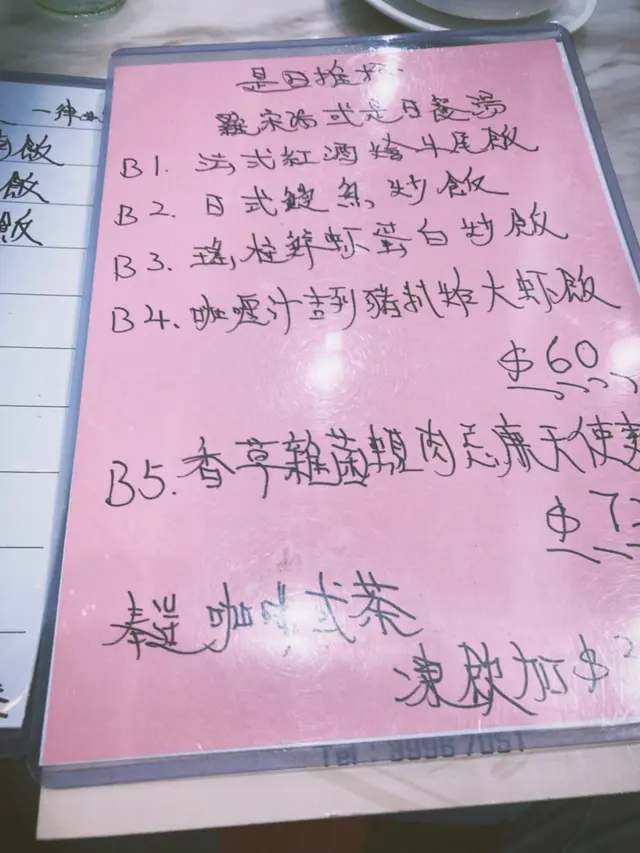 是日推介
羅宋湯或是日餐湯
B1. 法式紅酒燴牛尾飯
B2. 日式鰻魚炒飯
B3. 瑤柱鮮虾蛋白炒飯
B4. 咖喱汁吉列豬扒炸大虾飯
$60
B5. 香草雜菌蜆肉忌廉天使麵
$7
奉送咖啡或茶
凍飲加$2
一律
飯
飯
飯
Tel: